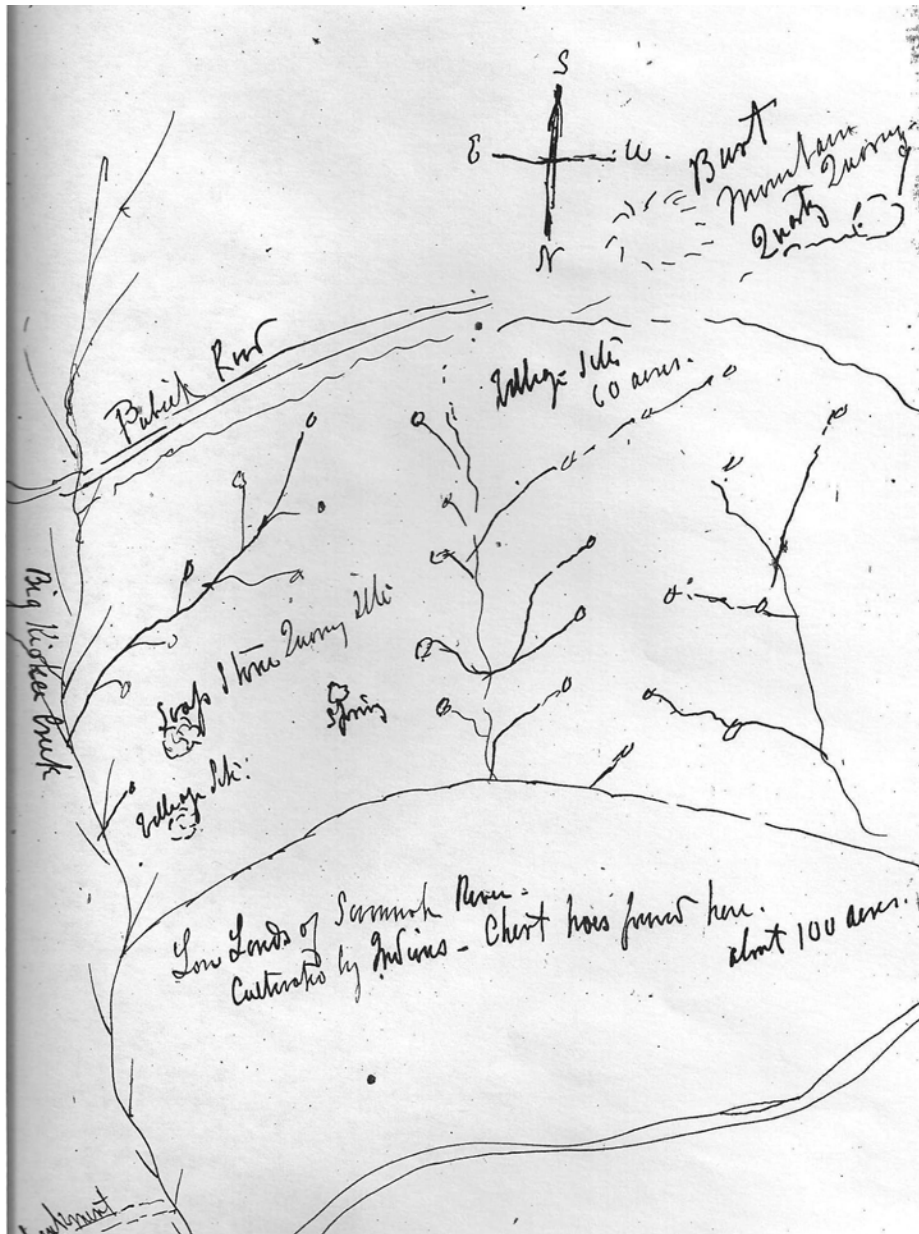 S
E
W.
N
Burt
Mountain
Quartz Quarry
Public Road
Village Site
60 acres.
Big Kiokee Creek
Soap Stone Quarry Site
Spring
Village Site.
Low Lands of Savannah River -
Cultivated by Indians - Chert hoes found here.
about 100 acres.